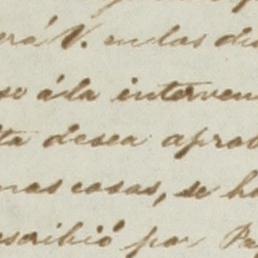 erá V. en las di
se á la interven
ta desea aprob
nas cosas, se h
scribió por Pa